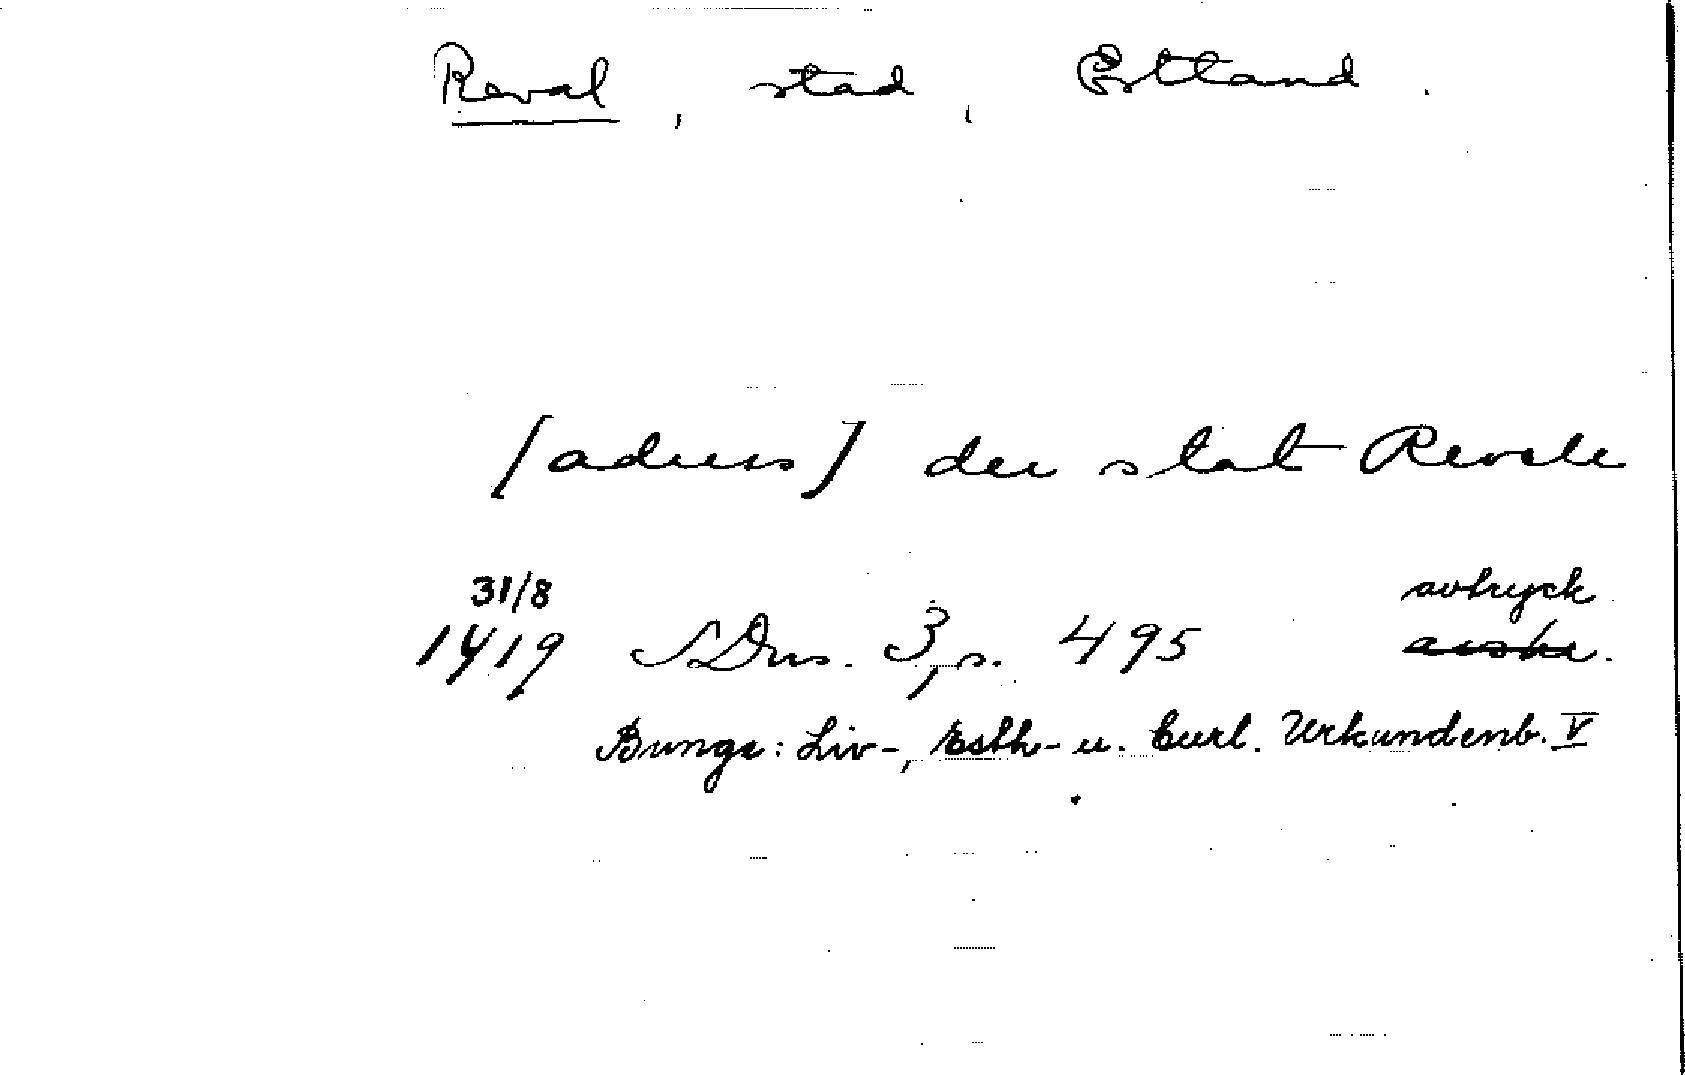 Reval, stad, Estland.
[adress] der stat Revele
31/8 avtryck
1419 SDns. 3, s. 495 avskr.
Bunge: Liv-, Esth- u. Curl. Urkundenb. V